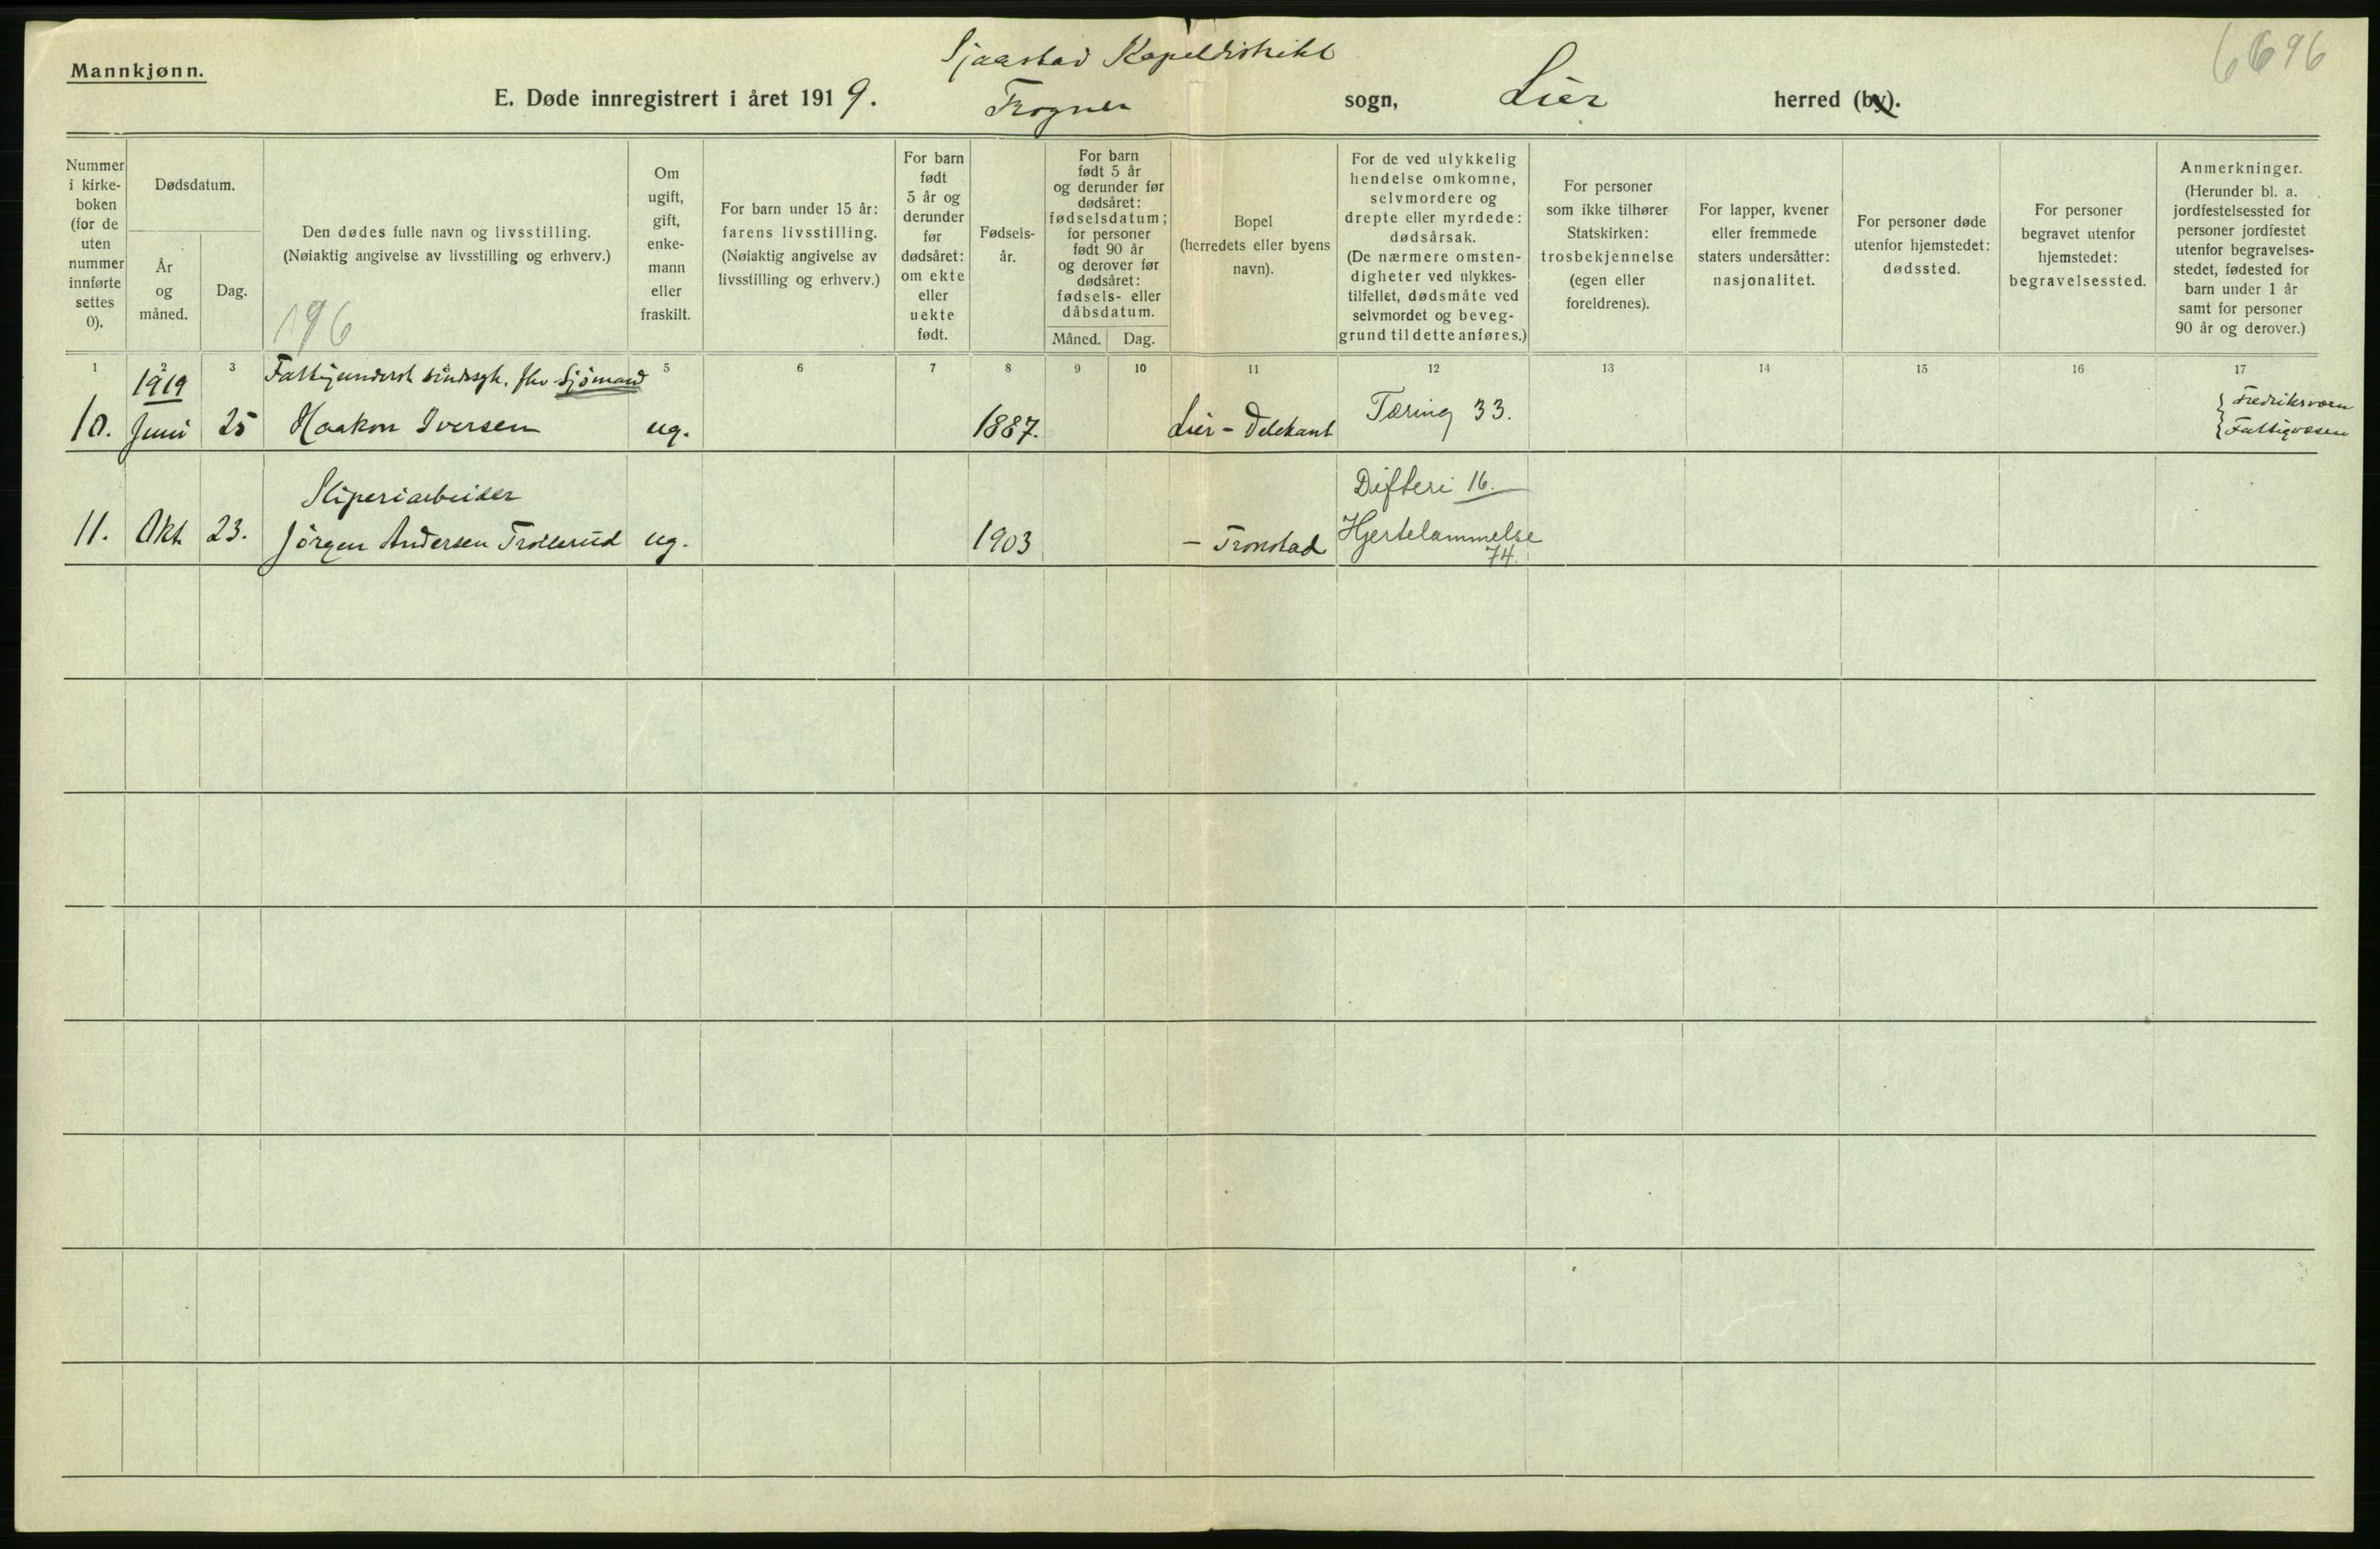 6696
Mannkjønn.
Sjaastad Kapeldistrikt
E. Døde innregistrert i året 1919. Frogner sogn, Lier herred (by).
Nummer i kirkeboken (for de uten nummer innførte settes 0).
Dødsdatum.
År og måned.
Dag.
Den dødes fulle navn og livsstilling.
(Nøiaktig angivelse av livsstilling og erhverv.)
196
Om ugift, gift, enkemann eller fraskilt.
For barn under 15 år: farens livsstilling.
(Nøiaktig angivelse av livsstilling og erhverv.)
For barn født 5 år og derunder før dødsåret: om ekte eller uekte født.
Fødselsår.
For barn født 5 år og derunder før dødsåret: fødselsdatum; for personer født 90 år og derover før dødsåret: fødsels- eller dåbsdatum.
Måned. Dag.
Bopel
(herredets eller byens navn).
For de ved ulykkelig hendelse omkomne, selvmordere og drepte eller myrdede: dødsårsak.
(De nærmere omstendigheter ved ulykkestilfellet, dødsmåte ved selvmordet og beveggrund til dette anføres.)
For personer som ikke tilhører Statskirken: trosbekjennelse (egen eller foreldrenes).
For lapper, kvener eller fremmede staters undersåtter: nasjonalitet.
For personer døde utenfor hjemstedet: dødssted.
For personer begravet utenfor hjemstedet: begravelsessted.
Anmerkninger.
(Herunder bl. a. jordfestelsessted for personer jordfestet utenfor begravelsesstedet, fødested for barn under 1 år samt for personer 90 år og derover.)
1 2 3 5 6 7 8 9 10 11 12 13 14 15 16 17
1919 Fattigunderst. sindssyk. fhv Sjømand
10. Juni 25 Haakon Iversen ug. 1887. Lier - Delekant Tæring 33. Fredriksværn
Fattigvæsen
Sliperiarbeider Difteri 16.
11. Okt. 23. Jörgen Andersen Trollerud ug. 1903 - Tronstad Hjertelammelse
74.